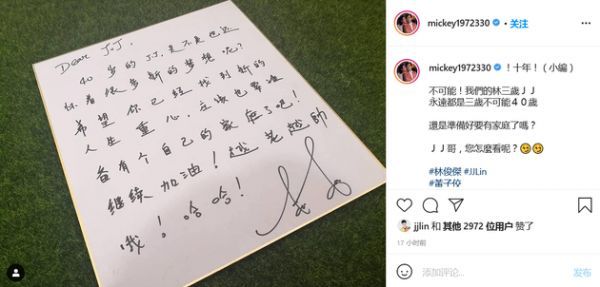 Dear JJ,
40岁的JJ,是不是也还
怀着很多新的梦想呢?
希望你已经找到新的
人生重心,应该也準
备有个自己的家庭了吧!
继续加油!越老越帅
哦!哈哈!
mickey1972330 • 关注
mickey1972330 ！十年！（小編）
不可能！我們的林三歲ＪＪ
永遠都是三歲不可能４０歲
還是準備好要有家庭了嗎？
ＪＪ哥，您怎麼看呢？
#林俊傑 #JJLin
#黃子佼
jjlin 和 其他 2972 位用户 赞了
17 小时前
添加评论...
发布